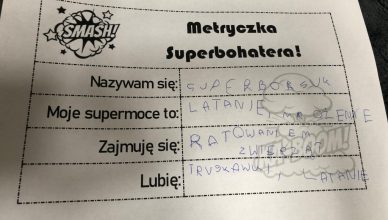 SMASH!
Metryczka
Superbohatera!
Nazywam się: SUPERBORSUK
Moje supermoce to: LATANIE
Zajmuję się: RATOWANIEM
ZWIERZĄT
Lubię: LATANIE